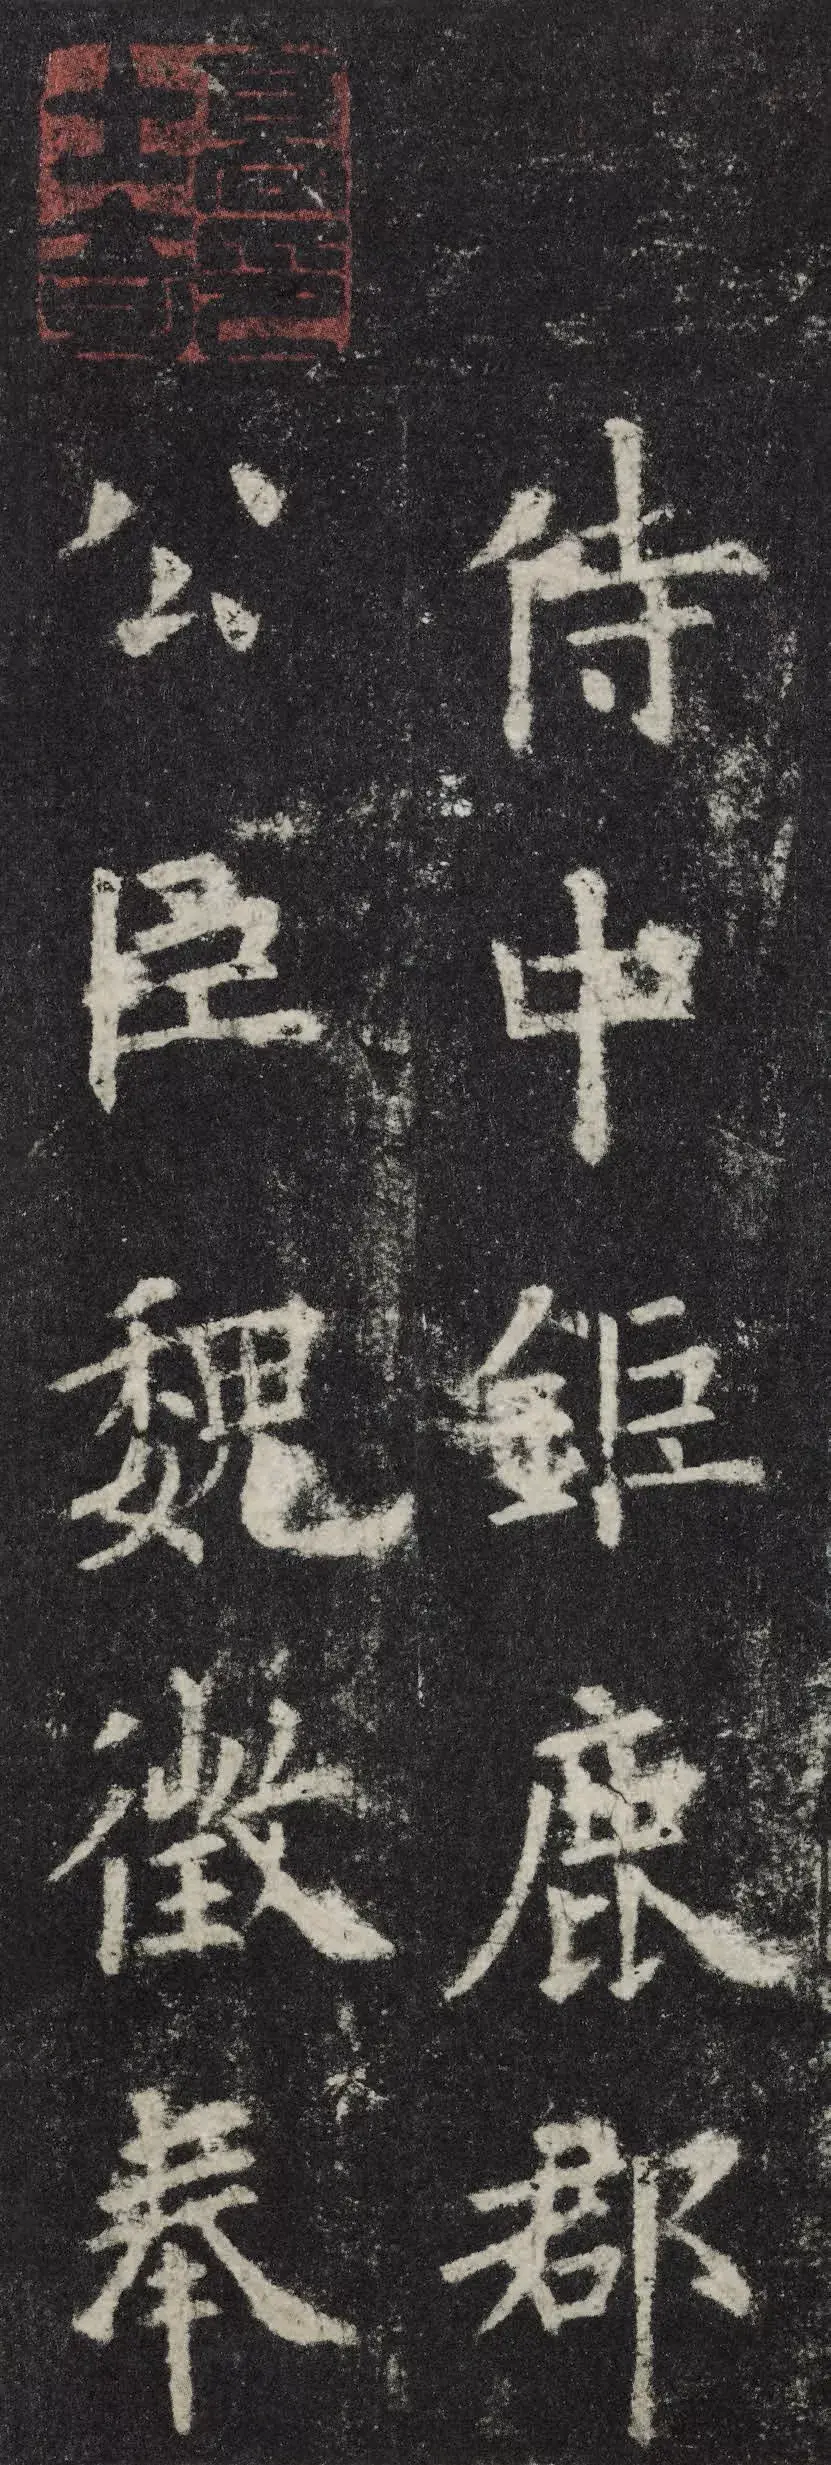 侍中鉅鹿郡
公臣魏徵奉